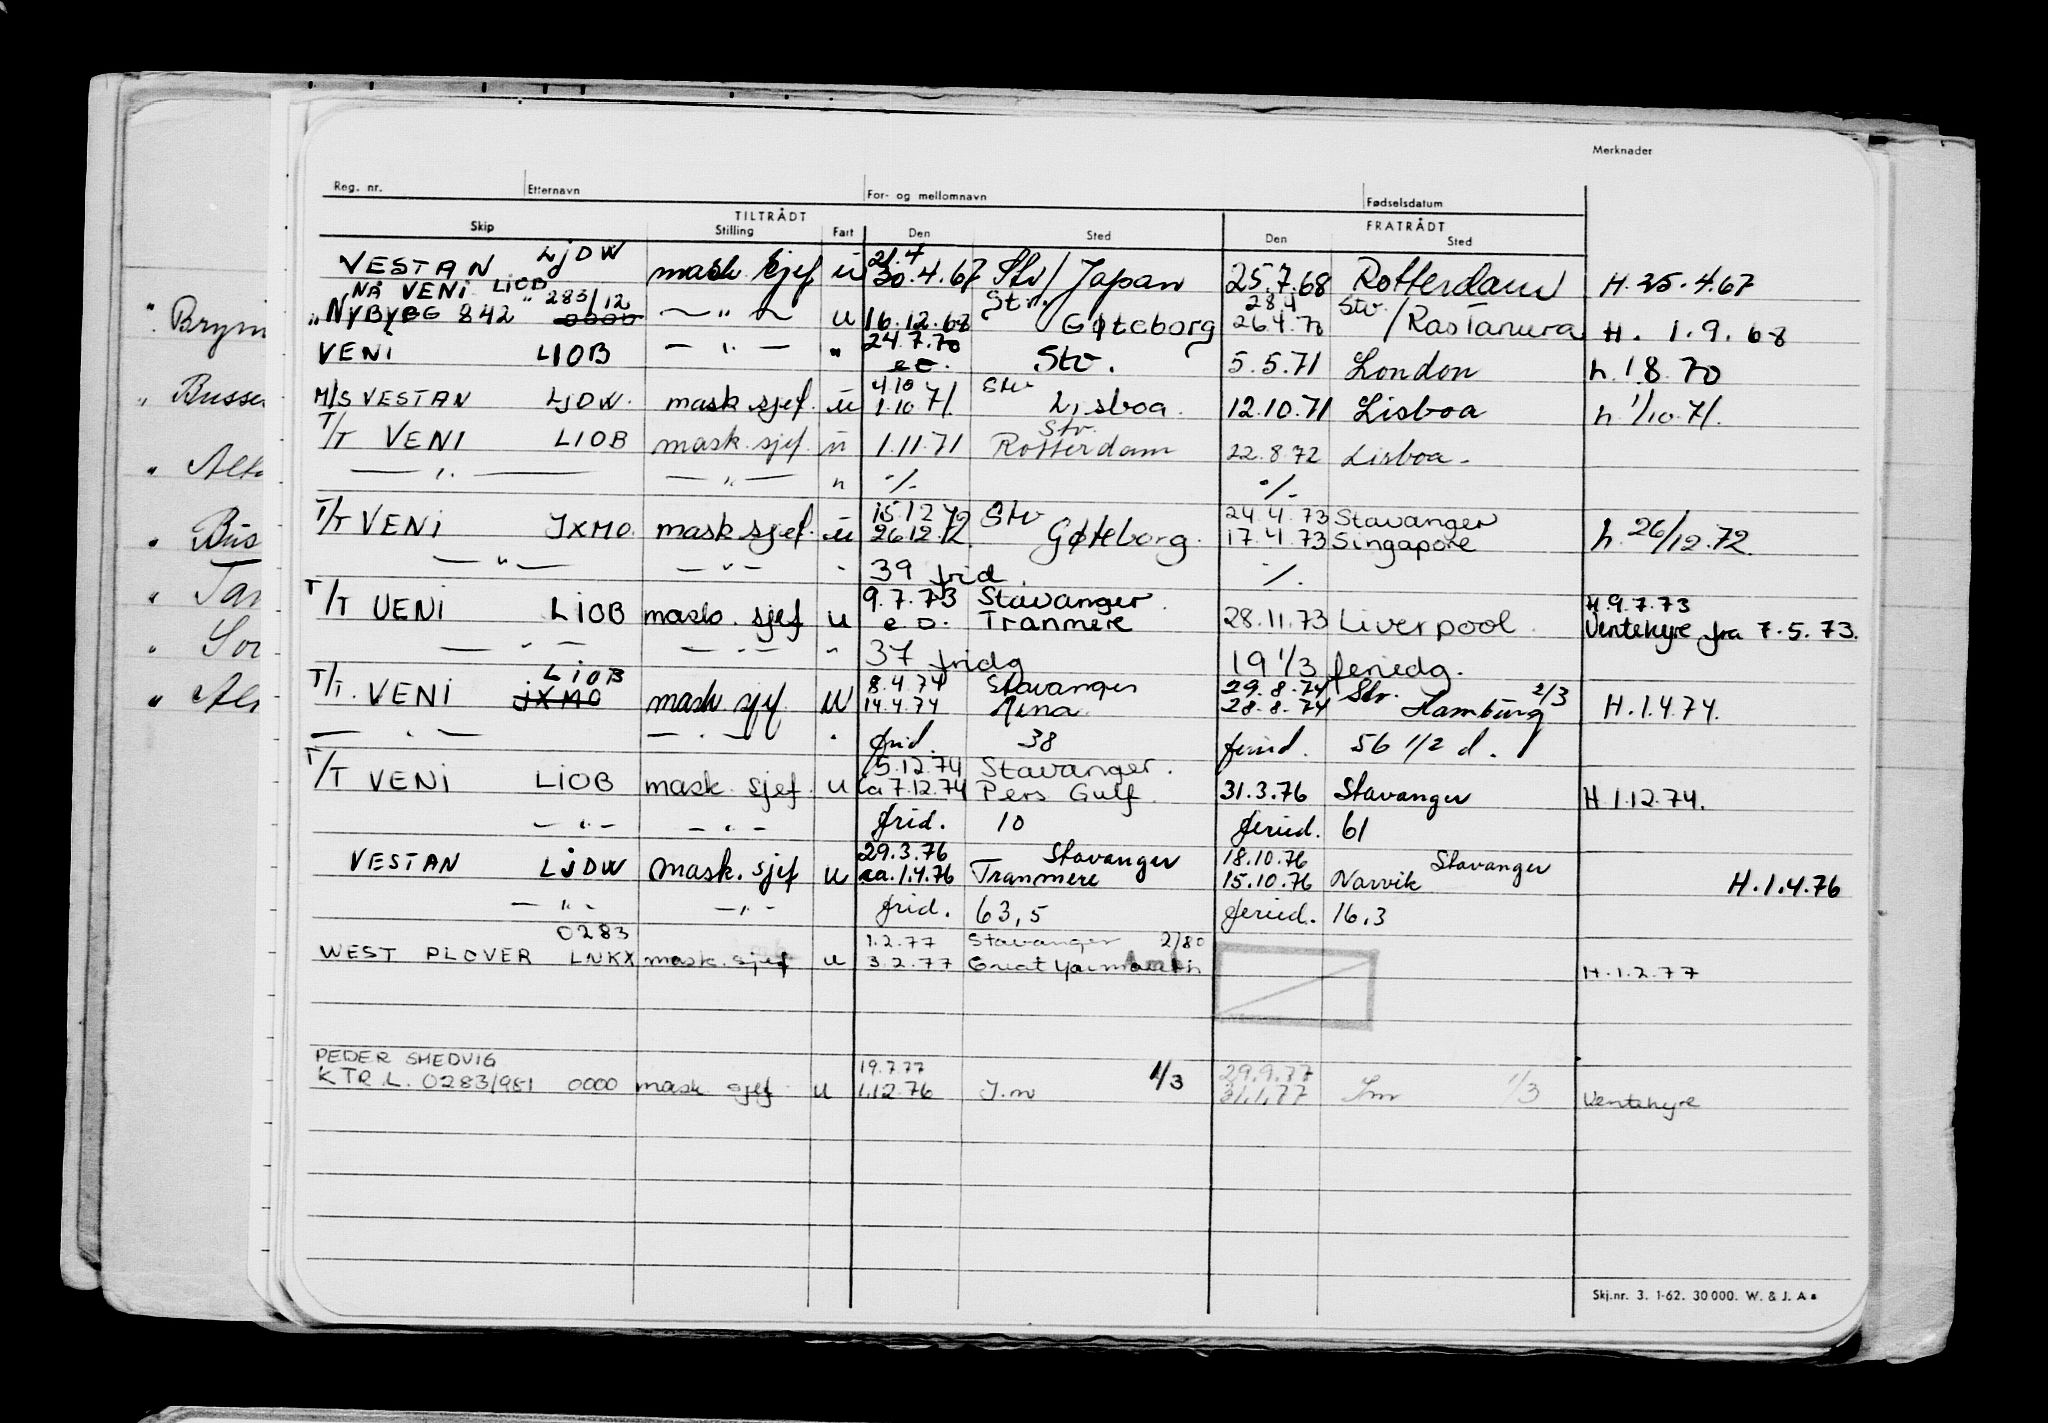 Merknader
Reg. nr. Etternavn For- og mellomnavn Fødselsdatum
TILTRÅDT FRATRÅDT
Skip Stilling Fart Den Sted Den Sted
VESTAN LJDW mask sjef u 21.4 30.4.67 Stv/Japan 25.7.68 Rotterdam H. 25.4.67
NÅ VENI LIOB
" NYBYGG 842 " 283/12 0000 — " — u 16.12.68 Stv. Gøteborg 28.4 26.4.70 Stv/Rastanura H. 1.9.68
VENI LIOB — " — " 24.7.70 e.o. Stv. 5.5.71 London h. 1.8.70
M/S VESTAN LJDW. mask sjef. u 4.10 1.10.71. Stv Lisboa. 12.10.71 Lisboa h. 1/10.71.
T/T VENI LIOB mask. sjef. u 1.11.71 Stv. Rotterdam 22.8.72 Lisboa.
— " — — " — " ./. ./.
T/T VENI JXMO. mask sjef. u 15.12.72 Stv 24.4.73 Stavanger
26.12.72. Gøteborg. 17.4.73 Singapore h. 26/12.72.
— " — — " — " 39 frid. ./.
T/T VENI LIOB mask. sjef u 9.7.73 Stavanger. H.9.7.73
e.o. Tranmere 28.11.73 Liverpool. Ventehyre fra 7.5.73.
— " — — " — " 37 fridg 19 1/3 feriedg.
T/T. VENI LIOB JXMO mask sjef. u 8.4.74 Stavanger 29.8.74 Stv. 2/3
14.4.74 Mena 28.8.74 Hamburg H.1.4.74.
— " — — " — " frid. 38 feried. 56 1/2 d.
T/T VENI LIOB mask. sjef. u 5.12.74 Stavanger.
ca 7.12.74 Pers Gulf. 31.3.76 Stavanger H.1.12.74.
— " — — " — frid. 10 feried. 61
VESTAN LJDW mask. sjef u 29.3.76 Stavanger 18.10.76 Stavanger
ca. 1.4.76 Tranmere 15.10.76 Narvik H.1.4.76
— " — — " — frid. 63,5 feried. 16.3
0283 1.2.77 Stavanger 2/80
WEST PLOVER LNKX mask. sjef u 3.2.77 Great Yarmouth H.1.2.77
PEDER SMEDVIG 19.7.77 1/3 29.9.77 1/3
KTR L. 0283/981 0000 mask sjef u 1.12.76 J.m 31.1.77 Jm Ventehyre
Skj.nr. 3. 1-62. 30 000. W. & J. A s
" Brym
" Busse
" Alt
" Bus
" Tan
" Sor
" Al